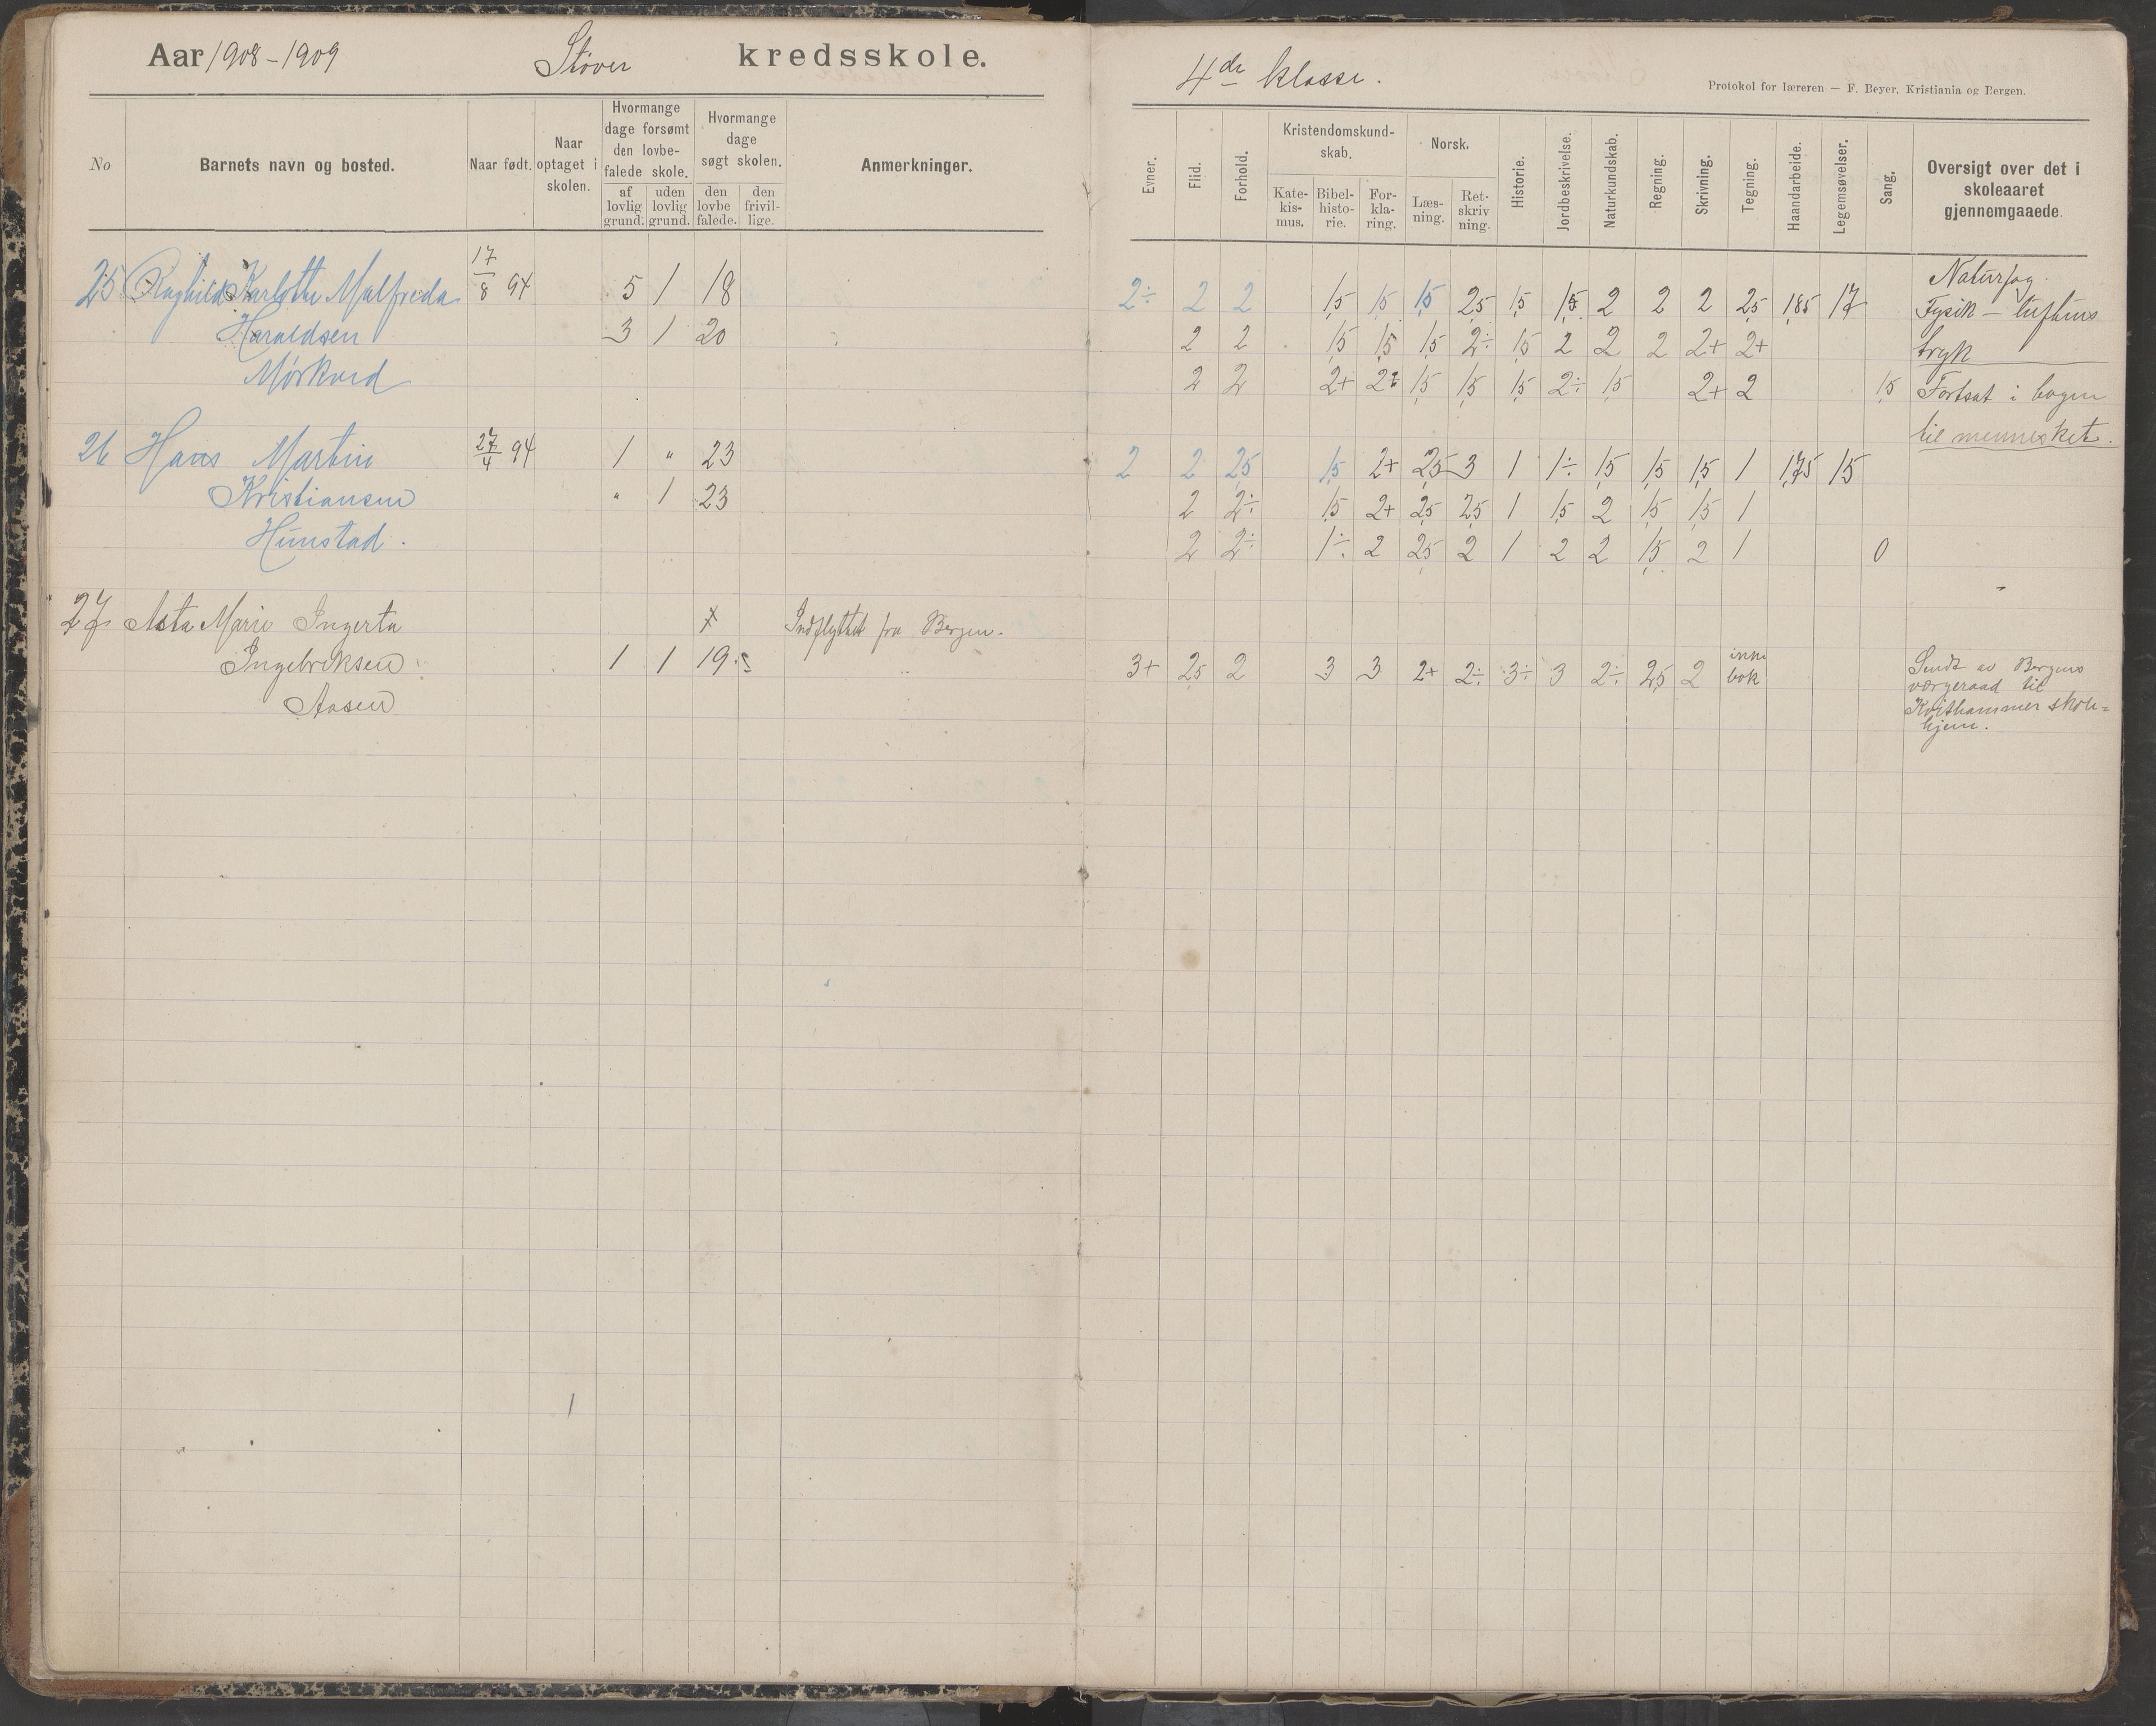 Aar 1908-1909 Støver kredsskole.
4de klasse.
Protokol for læreren — F. Beyer, Kristiania og Bergen.
No
Barnets navn og bosted.
Naar født.
Naar optaget i skolen.
Hvormange dage forsømt den lovbefalede skole.
af lovlig grund.
uden lovlig grund.
Hvormange dage søgt skolen.
den lovbe falede.
den frivil- lige.
Anmerkninger.
Evner.
Flid.
Forhold.
Kristendomskund- skab.
Kate- kis- mus.
Bibel- histo- rie.
For- kla- ring.
Norsk.
Læs- ning.
Ret- skriv ning.
Historie.
Jordbeskrivelse.
Naturkundskab.
Regning.
Skrivning.
Tegning.
Haandarbeide.
Legemsøvelser.
Sang.
Oversigt over det i skoleaaret gjennemgaaede.
25 Raghild Karlotte Malfreda 17/8 94 5 1 18 2÷ 2 2 1,5 1,5 1,5 2,5 1,5 1,5 2 2 2 2,5 1,85 1,7
Haraldsen 3 1 20 2 2 1,5 1,5 1,5 2÷ 1,5 2 2 2 2+ 2+
Mørkved 2 2 2+ 2+ 1,5 1,5 1,5 2÷ 1,5 2+ 2 1,5
Naturfag.
Fysik — luftens
tryk
Fortsat i bogen
til mennesket.
26 Hans Martin 27/4 94 1 " 23 2 2 2,5 1,5 2+ 2,5 3 1 1÷ 1,5 1,5 1,5 1 1,75 1,5
Kristiansen " 1 23 2 2÷ 1,5 2+ 2,5 2,5 1 1,5 2 1,5 1,5 1
Hunstad. 2 2÷ 1÷ 2 2,5 2 1 2 2 1,5 2 1 0
27 Asta Marie Ingerta x Indflyttet fra Bergen.
Ingebriksen 1 1 19 3+ 2,5 2 3 3 2+ 2÷ 3÷ 3 2÷ 2,5 2 inne bok
Aasen
Sendt av Bergens
værgeraad til
skole=
hjem.